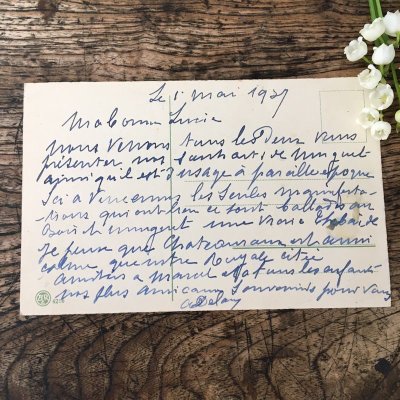 Le 1er mai 1929
Ma bonne Lucie
nous venons tous les Deux vous
présenter nos souhaits de muguet
ainsi qu'il est d'usage à pareille époque
Ici a Vincennes les seules manifesta-
tions qui ont lieu ce sont ballades au
Bois et muguet une vraie
je pense que Chateauroux est aussi
calme que notre Royale citée
Amitiés a Marcel et a tous les enfants
nos plus amicaux souvenirs pour vous